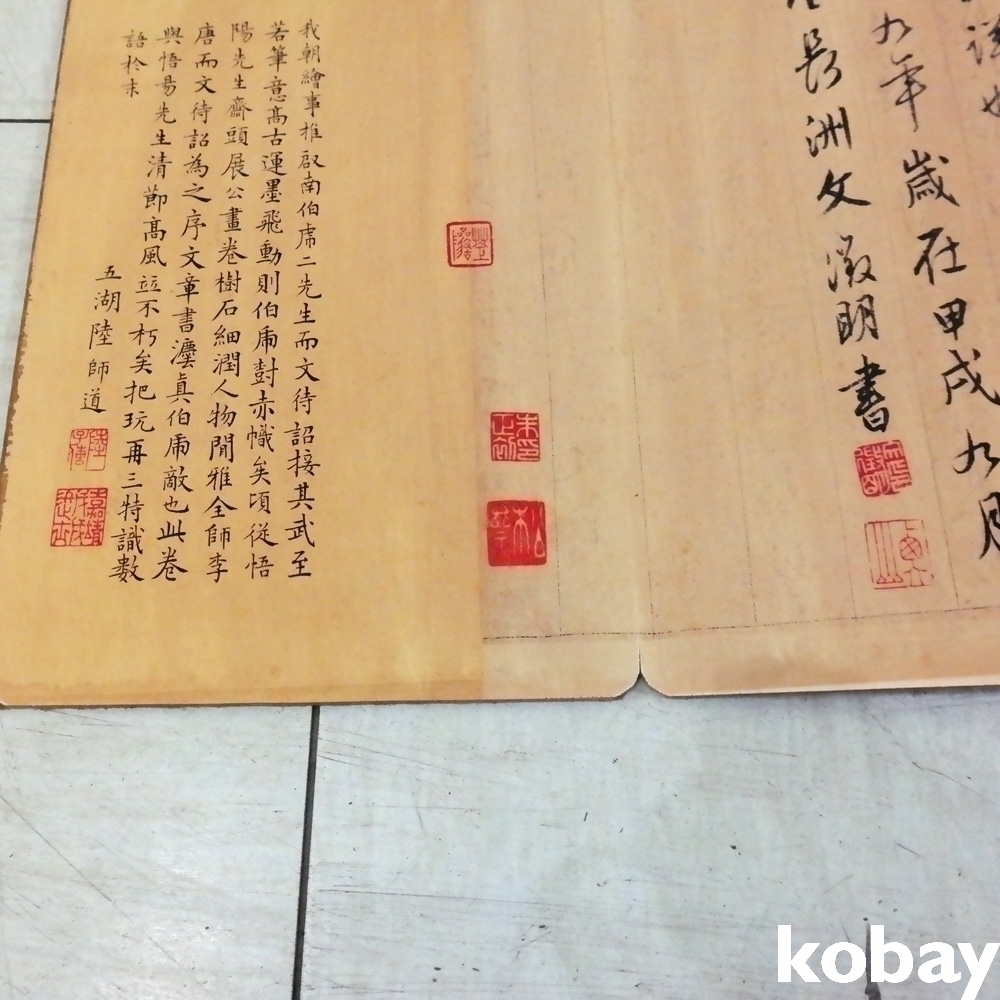 詳也
九年歲在甲戌九月
長洲文徵明書
我朝繪事推啟南伯虎二先生而文待詔接其武至
若筆意高古運墨飛動則伯虎對赤幟矣頃従悟
陽先生齋頭展公畫卷樹石細潤人物閒雅全師李
唐而文待詔為之序文章書灋真伯虎敵也此卷
與悟昜先生清節高風並不朽矣把玩再三特識數
語於末
五湖陸師道
kobay